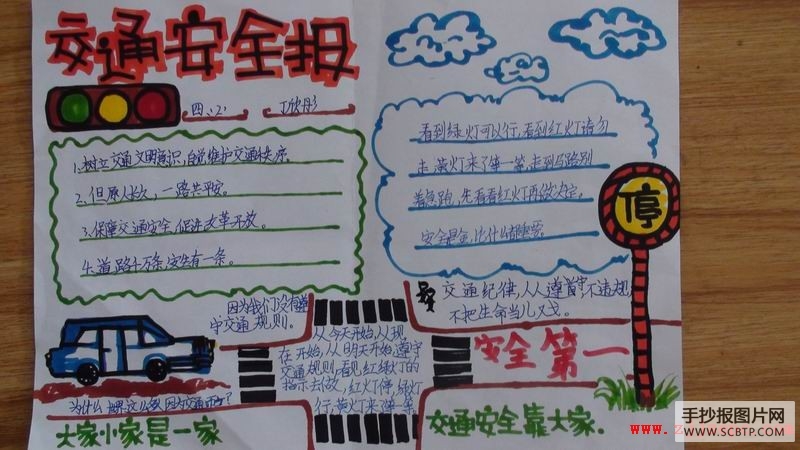 交通安全报
四、2、 丁欣彤
1.树立交通文明意识,自觉维护交通秩序。
2、但愿人长久,一路共平安。
3、保障交通安全,促进改革开放。
4.道路千万条,安全有一条。
看到绿灯可以行,看到红灯请勿
走,黄灯来了等一等,走到马路别
着急跑,先看看红灯再做决定,
安全是金,比什么都重要。
停
交通纪律,人人遵守不违规,
不把生命当儿戏。
因为我们没有遵
守交通规则。
从今天开始,从现
在开始,从明天开始,遵守
交通规则,看见红绿灯的
指示去做,红灯停,绿灯
行,黄灯来了等一等。
安全第一
为什么
因为交通
大家小家是一家
交通安全靠大家.
手抄报图片网
WWW.SCBTP.COM
www.z